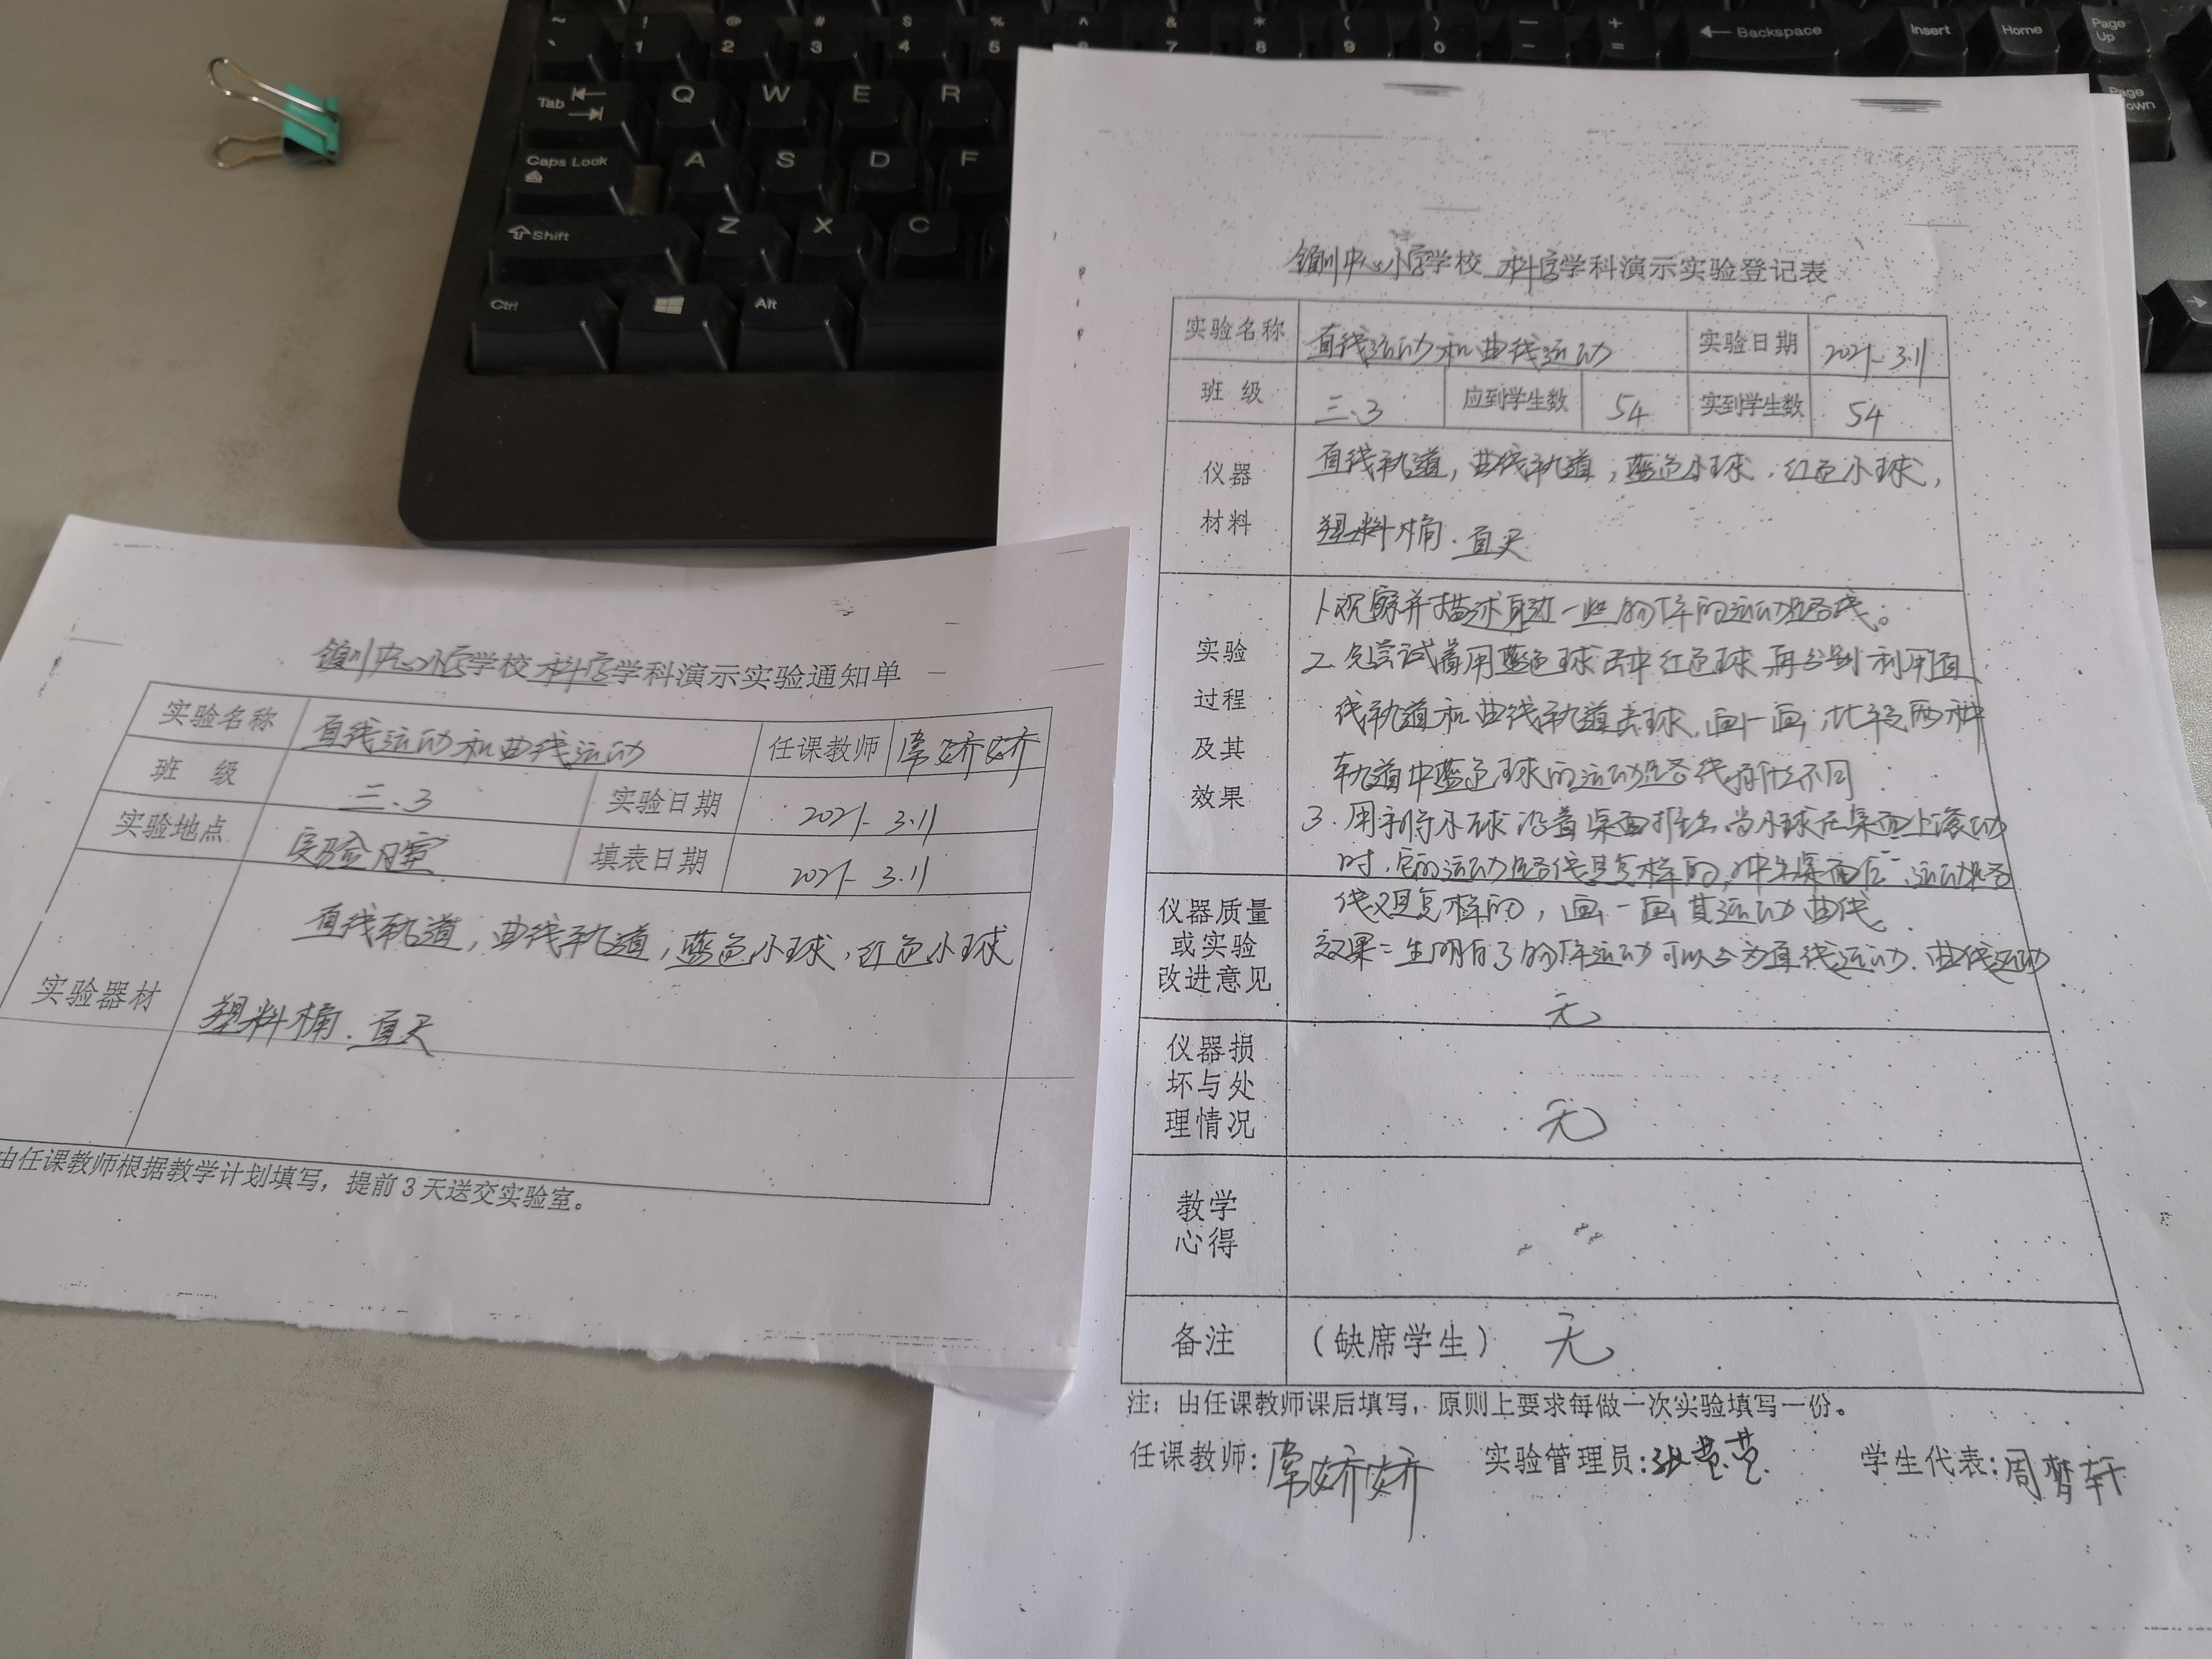 ~ ! @ # $ % ^ & * ( ) — +
` 1 2 3 4 5 6 7 8 9 0 - =
← Backspace
Insert Home Page Up
Tab Q W E R
Page
Caps Lock A S D F
Shift Z X C
Ctrl Alt
镇川中心小学学校 科学学科演示实验通知单
实验名称 直线运动和曲线运动 任课教师 常娇娇
班 级 三.3 实验日期 2021-3.11
实验地点 实验室 填表日期 2021-3.11
实验器材
直线轨道,曲线轨道,蓝色小球,红色小球
塑料桶.直尺
由任课教师根据教学计划填写,提前3天送交实验室。
镇川中心小学学校 科学学科演示实验登记表
实验名称 直线运动和曲线运动 实验日期 2021-3.11
班 级 三.3 应到学生数 54 实到学生数 54
仪器
材料
直线轨道,曲线轨道,蓝色小球.红色小球,
塑料桶.直尺
实验
过程
及其
效果
1.观察并描述身边一些物体的运动路线。
2.先尝试着用蓝色球击中红色球,再分别利用直
线轨道和曲线轨道击球,画一画,比较两种
轨道中蓝色球的运动路线有什么不同
3.用手将小球沿着桌面推出,当小球在桌面上滚动
时,它的运动路线是怎样的,冲出桌面后,运动路
线又是怎样的,画一画其运动曲线。
效果:生明白了物体运动可以分为直线运动.曲线运动
仪器质量
或实验
改进意见
无
仪器损
坏与处
理情况
无
教学
心得
备注 (缺席学生) 无
注:由任课教师课后填写,原则上要求每做一次实验填写一份。
任课教师:常娇娇 实验管理员: 学生代表:周梦轩